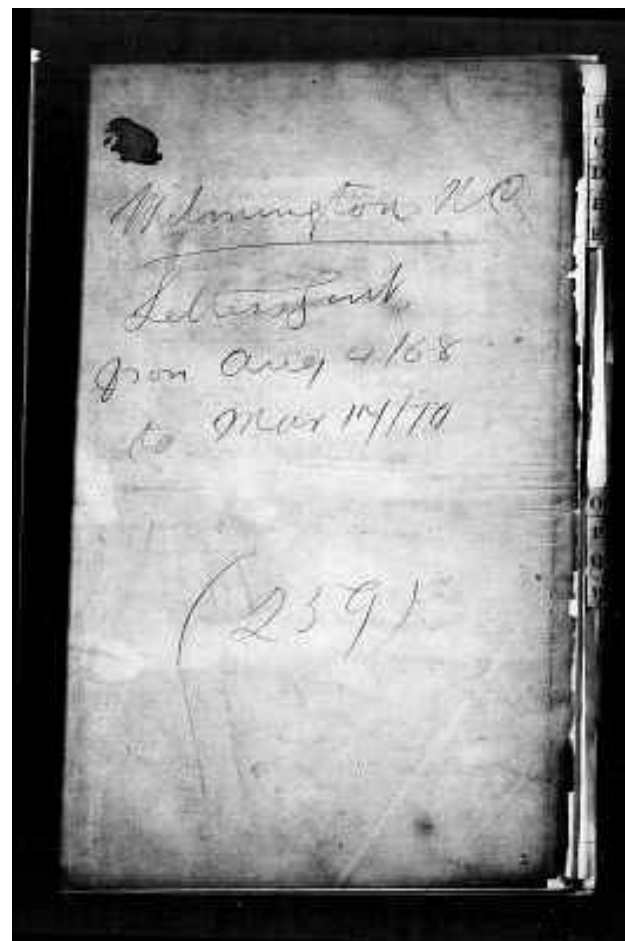 Wilmington N.C.
Letters Sent
from Aug 9/68
to Mar 14/70
(259)